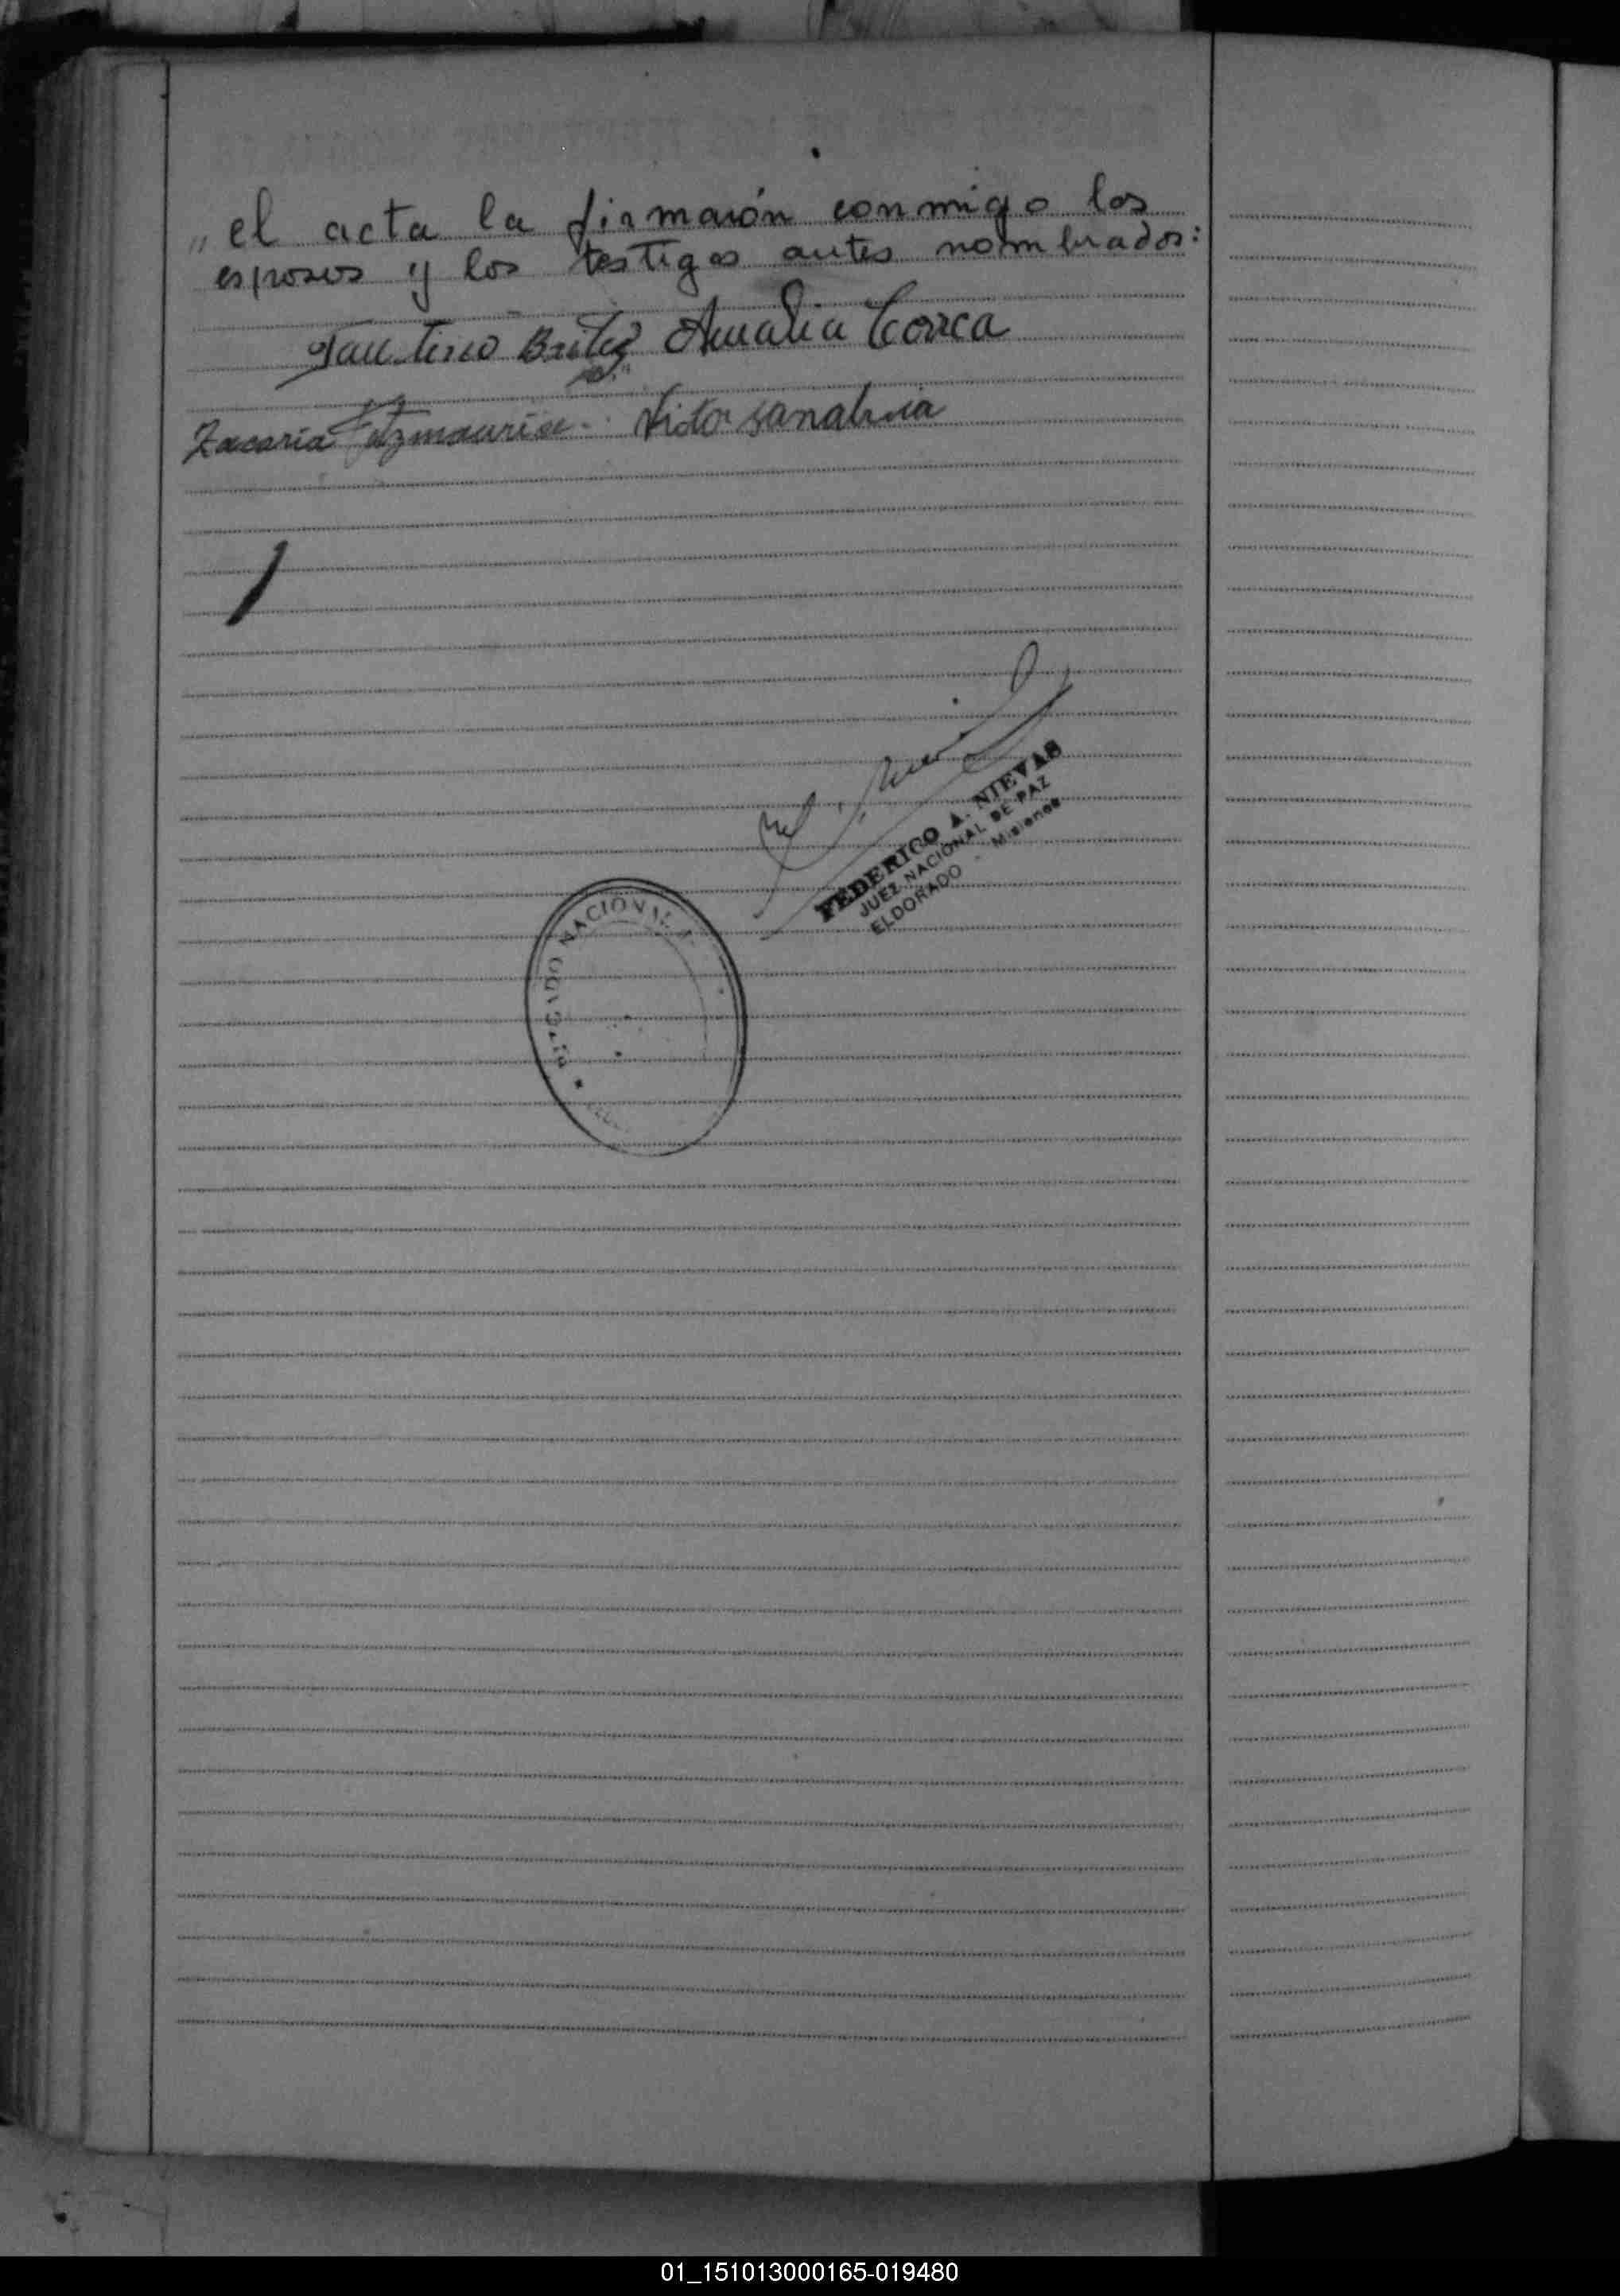 „ el acta la firmarón conmigo los
esposos y los testigos antes nombrados:
Faustino Britez Amalia
Zacaria Fitzmaurise. Vitor sanabria
FEDERICO A. NIEVAS
JUEZ NACIONAL DE PAZ
ELDORADO - Misiones
JUZGADO NACIONAL
01_151013000165-019480